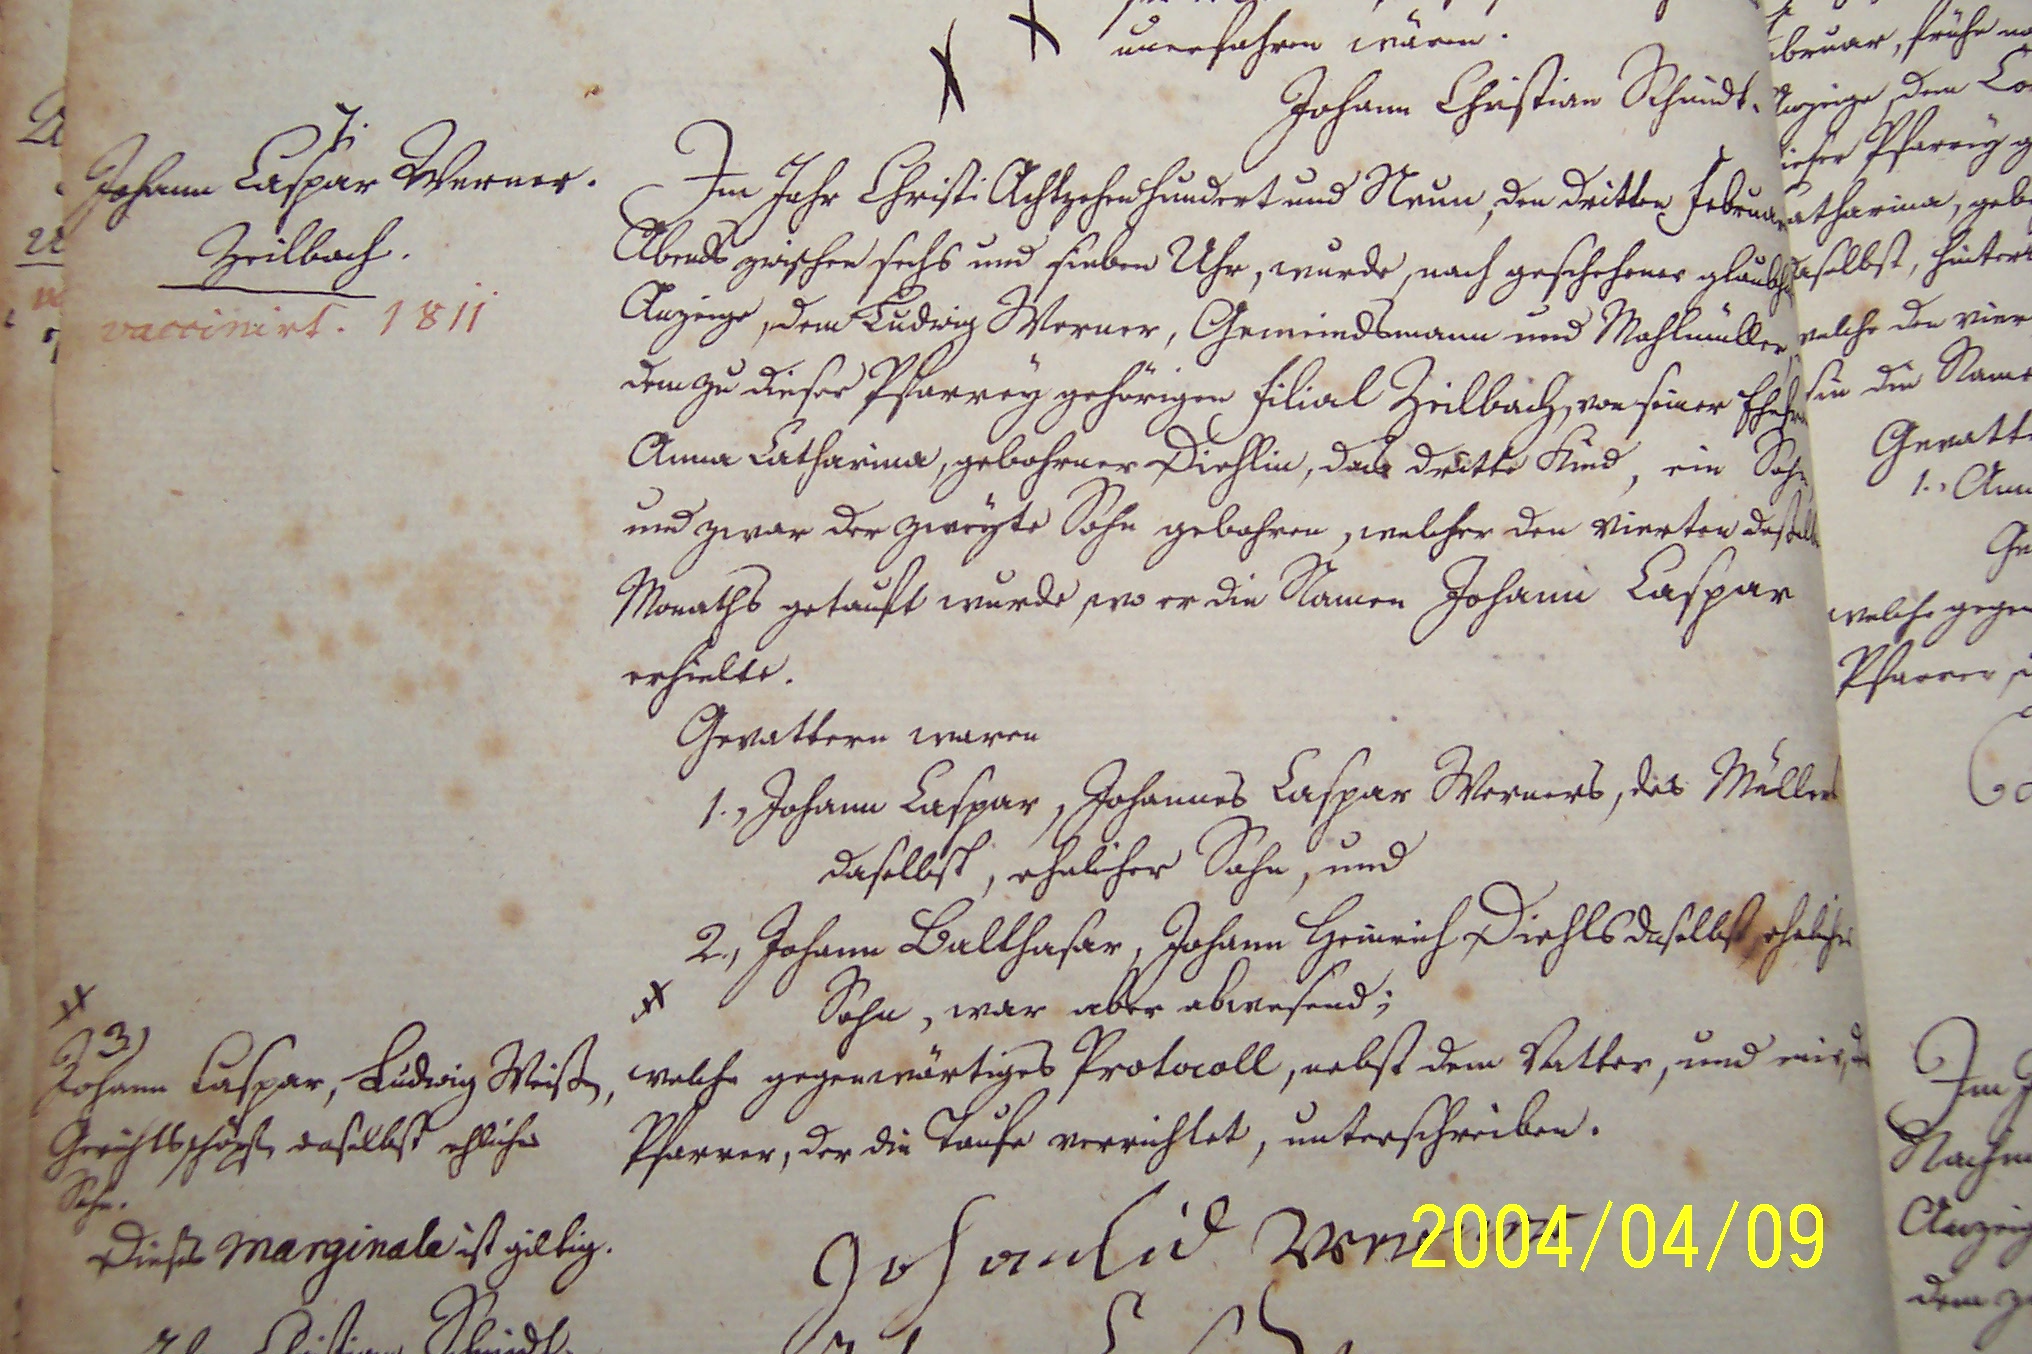 unerfahren wären.
Johann Christian Schmidt.
7.
Johann Caspar Werner.
Zeilbach.
vaccinirt. 1811
Im Jahr Christi Achtzehenhundert und Neun, den dritten Februar
Abends zwischen sechs und sieben Uhr, wurde, nach geschehener
Anzeige, dem Ludwig Werner, Gemeindsmann und Mahlmüller,
dem zu dieser Pfarrey gehörigen Filial Zeilbach, von seiner
Anna Catharina, gebohrner Diehlin, das dritte Kind, ein Sohn
und zwar der zweyte Sohn gebohren, welcher den vierten
Monaths getauft wurde, wo er die Namen Johann Caspar
erhielte.
Gevattern waren
1., Johann Caspar, Johannes Caspar Werners, des Müllers
daselbst, ehelicher Sohn, und
2., Johann Balthasar, Johann Heinrich Diehls daselbst ehelicher
Sohn, war aber abwesend;
welche gegenwärtiges Protocoll, nebst dem Vatter, und mir,
Pfarrer, der die Taufe verrichtet, unterschreiben.
3)
Johann Caspar, Ludwig Weiß,
Gerichtsschöpf daselbst ehlicher
Sohn.
Dieses Marginale ist giltig.
Christian Schmidt.
2004/04/09
bruar, frühe
Anzeige, dem
dieser Pfarrey
Catharina,
daselbst,
welche den vier
sie die Name
1., Ann
welche
Pfarrer,
Im
Anzeig
dem